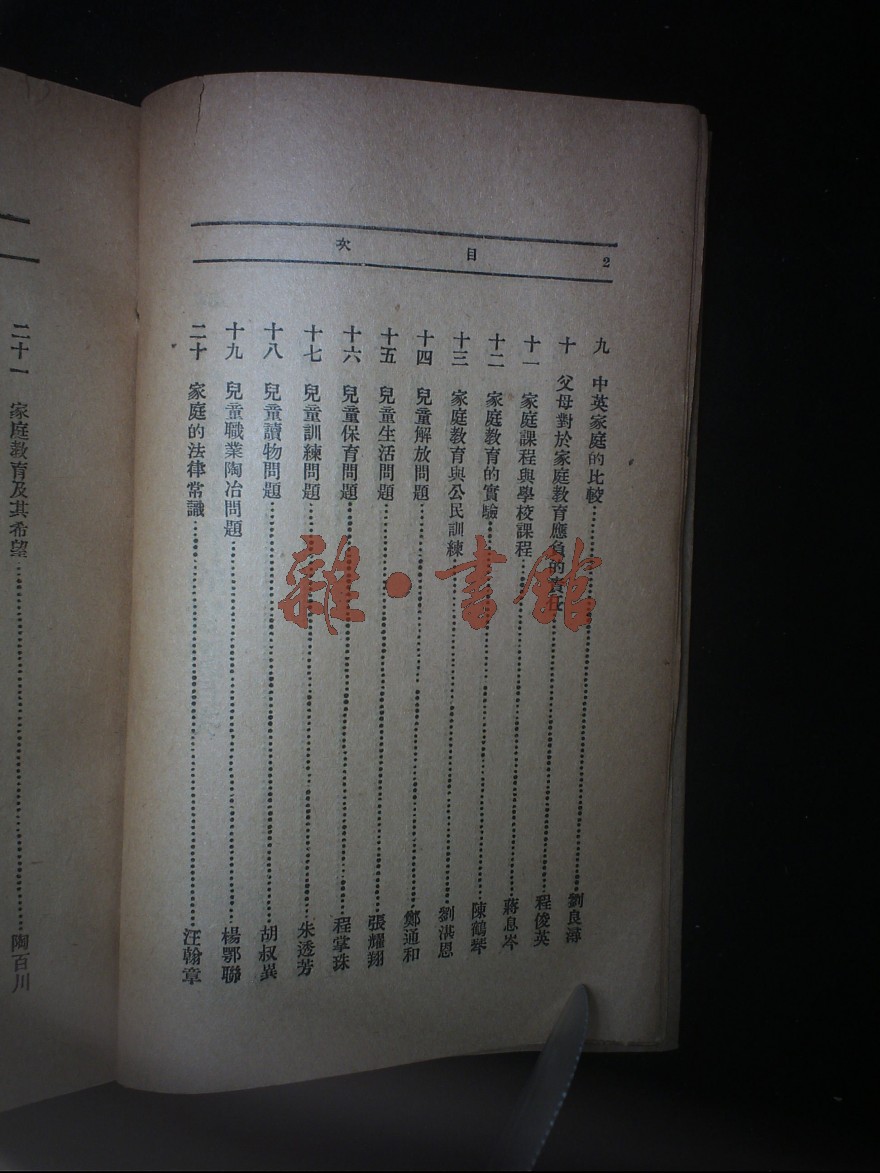 2 目次
九 中英家庭的比較……劉良模
十 父母對於家庭教育應負的責任……程俊英
十一 家庭課程與學校課程……蔣息岑
十二 家庭教育的實驗……陳鶴琴
十三 家庭教育與公民訓練……劉湛恩
十四 兒童解放問題……鄭通和
十五 兒童生活問題……張耀翔
十六 兒童保育問題……程掌珠
十七 兒童訓練問題……朱透芳
十八 兒童讀物問題……胡叔異
十九 兒童職業陶冶問題……楊鄂聯
二十 家庭的法律常識……汪翰章
二十一 家庭教育及其希望……陶百川
雜·書館